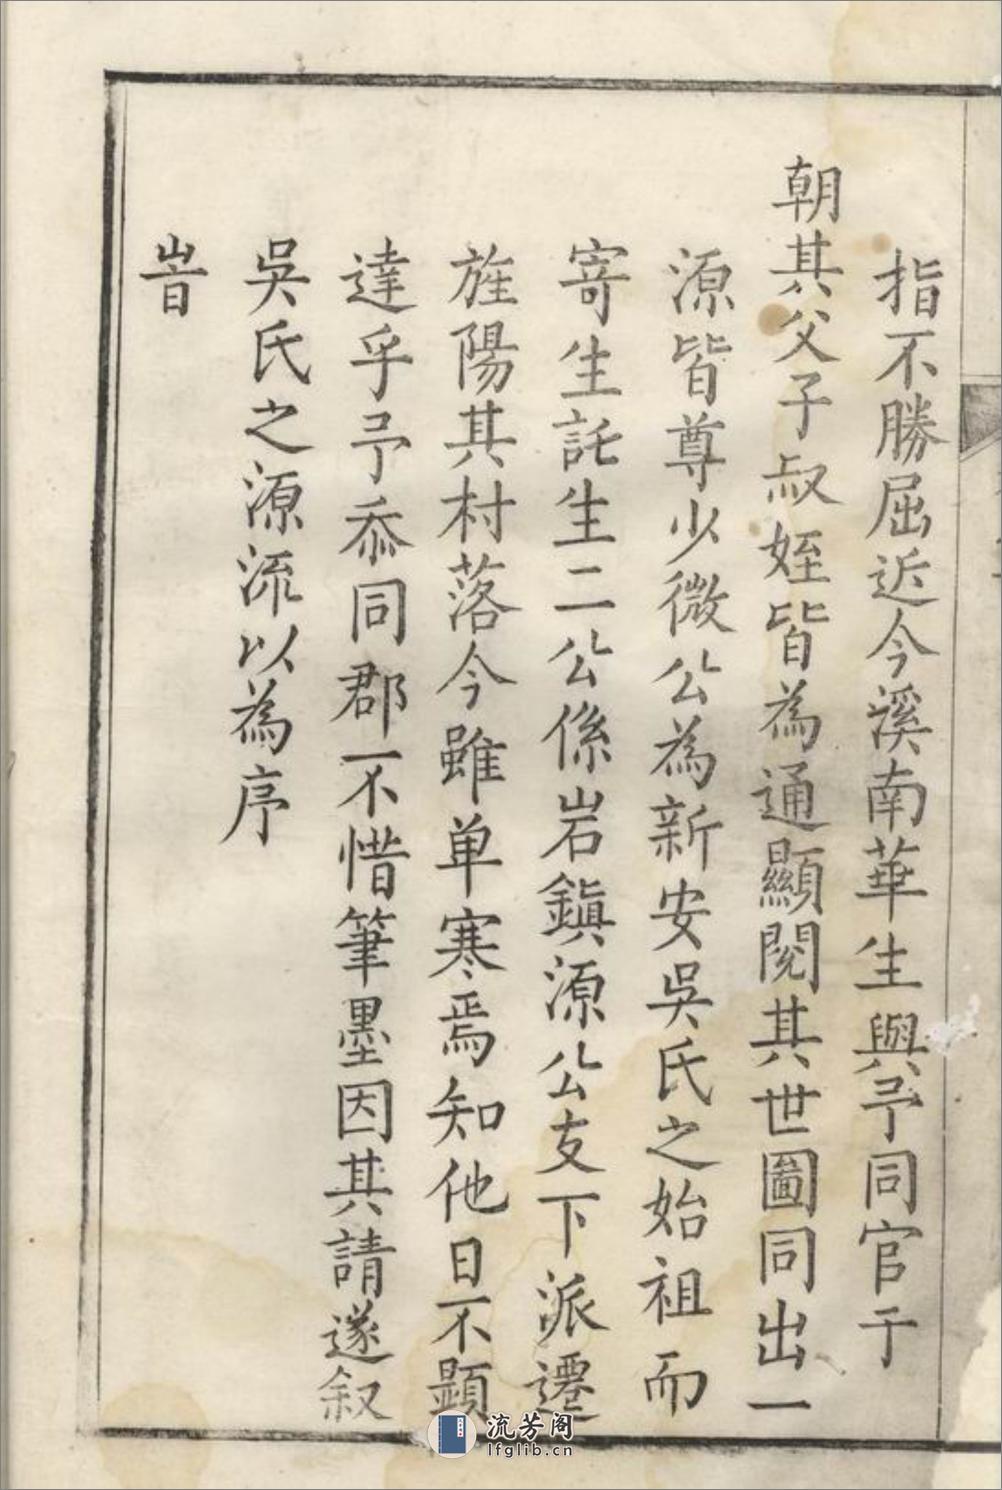 指不勝屈近今溪南華生與予同官于
朝其父子叔姪皆為通顯閱其世圖同出一
源皆尊少微公為新安吳氏之始祖而
寄生託生二公係岩鎮源公支下派遷
旌陽其村落今雖単寒焉知他日不顕
達乎予忝同郡不惜筆墨因其請遂叙
吳氏之源流以為序
旹
流芳阁
lfglib.cn